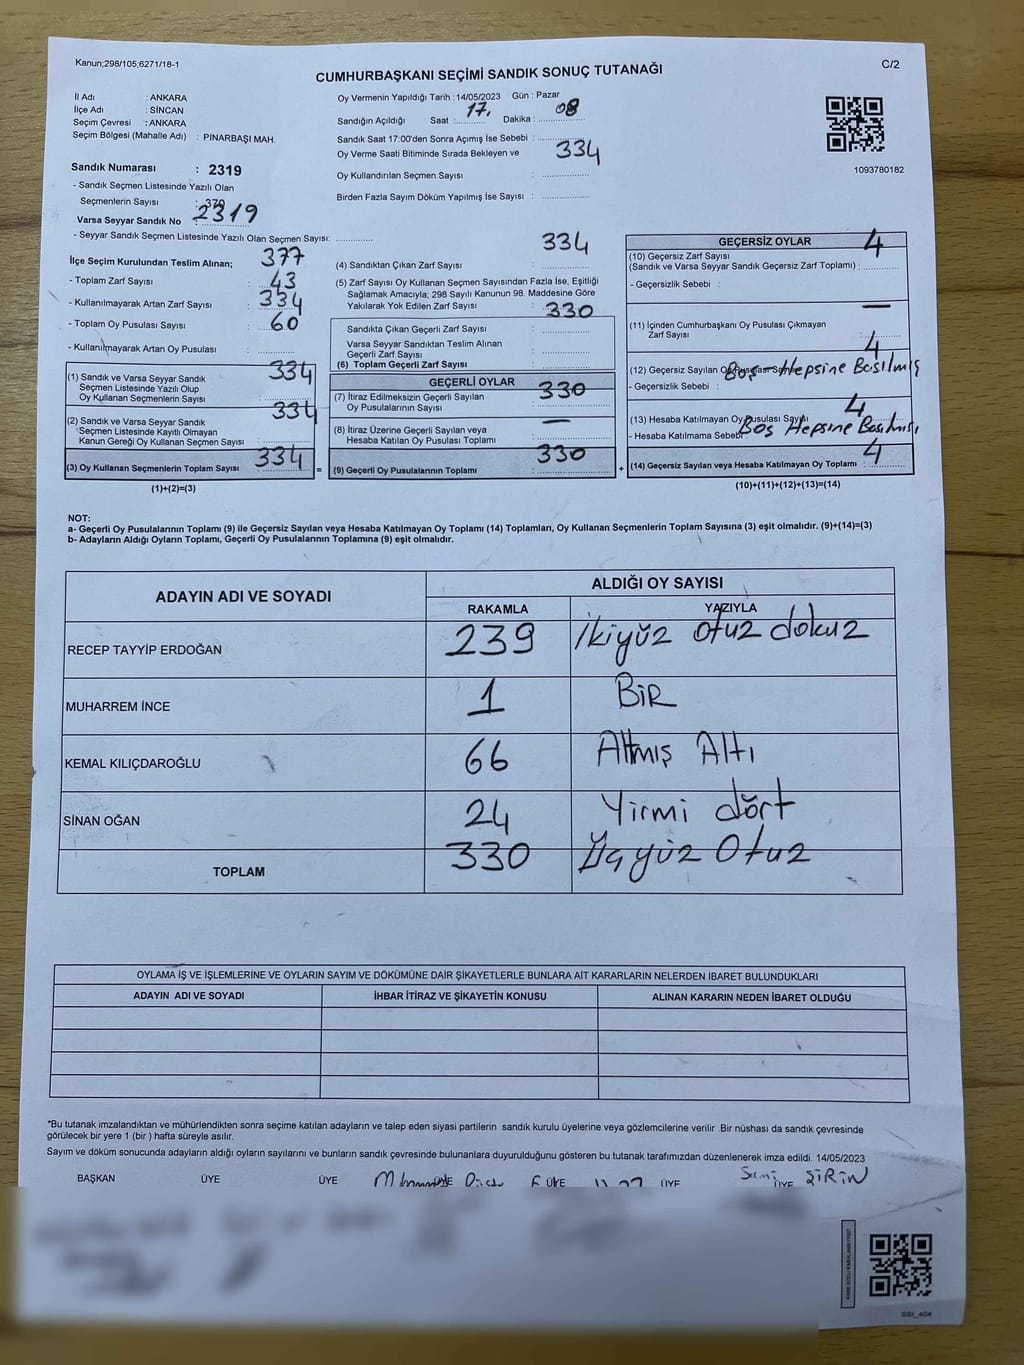 Kanun;298/105;6271/18-1
C/2
CUMHURBAŞKANI SEÇİMİ SANDIK SONUÇ TUTANAĞI
İl Adı : ANKARA
İlçe Adı : SİNCAN
Seçim Çevresi : ANKARA
Seçim Bölgesi (Mahalle Adı) : PINARBAŞI MAH.
Sandık Numarası : 2319
- Sandık Seçmen Listesinde Yazılı Olan
Seçmenlerin Sayısı : 370
Varsa Seyyar Sandık No : 2319
- Seyyar Sandık Seçmen Listesinde Yazılı Olan Seçmen Sayısı:
Oy Vermenin Yapıldığı Tarih :14/05/2023 Gün : Pazar
Sandığın Açıldığı Saat : 17, Dakika : 08
Sandık Saat 17:00'den Sonra Açımış İse Sebebi :
Oy Verme Saati Bitiminde Sırada Bekleyen ve 334
Oy Kullandırılan Seçmen Sayısı :
Birden Fazla Sayım Döküm Yapılmış İse Sayısı :
1093780182
İlçe Seçim Kurulundan Teslim Alınan; 377
- Toplam Zarf Sayısı : 43
- Kullanılmayarak Artan Zarf Sayısı : 334
- Toplam Oy Pusulası Sayısı : 60
- Kullanılmayarak Artan Oy Pusulası :
(1) Sandık ve Varsa Seyyar Sandık 334
Seçmen Listesinde Yazılı Olup
Oy Kullanan Seçmenlerin Sayısı :
(2) Sandık ve Varsa Seyyar Sandık 334
Seçmen Listesinde Kayıtlı Olmayan
Kanun Gereği Oy Kullanan Seçmen Sayısı :
(3) Oy Kullanan Seçmenlerin Toplam Sayısı : 334 =
(1)+(2)=(3)
334
(4) Sandıktan Çıkan Zarf Sayısı :
(5) Zarf Sayısı Oy Kullanan Seçmen Sayısından Fazla İse, Eşitliği
Sağlamak Amacıyla; 298 Sayılı Kanunun 98. Maddesine Göre
Yakılarak Yok Edilen Zarf Sayısı : 330
Sandıkta Çıkan Geçerli Zarf Sayısı :
Varsa Seyyar Sandıktan Teslim Alınan
Geçerli Zarf Sayısı :
(6) Toplam Geçerli Zarf Sayısı :
GEÇERLİ OYLAR
(7) İtiraz Edilmeksizin Geçerli Sayılan 330
Oy Pusulalarının Sayısı :
(8) İtiraz Üzerine Geçerli Sayılan veya —
Hesaba Katılan Oy Pusulası Toplamı :
(9) Geçerli Oy Pusulalarının Toplamı : 330 +
GEÇERSİZ OYLAR 4
(10) Geçersiz Zarf Sayısı
(Sandık ve Varsa Seyyar Sandık Geçersiz Zarf Toplamı) :
- Geçersizlik Sebebi :
—
(11) İçinden Cumhurbaşkanı Oy Pusulası Çıkmayan
Zarf Sayısı :
4
(12) Geçersiz Sayılan Oy Pusulası Sayısı Boş Hepsine Basılmış
- Geçersizlik Sebebi :
4
(13) Hesaba Katılmayan Oy Pusulası Sayısı
- Hesaba Katılmama Sebebi Boş Hepsine Basılmış
(14) Geçersiz Sayılan veya Hesaba Katılmayan Oy Toplamı : 4
(10)+(11)+(12)+(13)=(14)
NOT:
a- Geçerli Oy Pusulalarının Toplamı (9) ile Geçersiz Sayılan veya Hesaba Katılmayan Oy Toplamı (14) Toplamları, Oy Kullanan Seçmenlerin Toplam Sayısına (3) eşit olmalıdır. (9)+(14)=(3)
b- Adayların Aldığı Oyların Toplamı, Geçerli Oy Pusulalarının Toplamına (9) eşit olmalıdır.
ADAYIN ADI VE SOYADI ALDIĞI OY SAYISI
RAKAMLA YAZIYLA
RECEP TAYYİP ERDOĞAN 239 İkiyüz otuz dokuz
MUHARREM İNCE 1 BİR
KEMAL KILIÇDAROĞLU 66 Altmış Altı
SİNAN OĞAN 24 Yirmi dört
TOPLAM 330 Üçyüz Otuz
OYLAMA İŞ VE İŞLEMLERİNE VE OYLARIN SAYIM VE DÖKÜMÜNE DAİR ŞİKAYETLERLE BUNLARA AİT KARARLARIN NELERDEN İBARET BULUNDUKLARI
ADAYIN ADI VE SOYADI İHBAR İTİRAZ VE ŞİKAYETİN KONUSU ALINAN KARARIN NEDEN İBARET OLDUĞU
*Bu tutanak imzalandıktan ve mühürlendikten sonra seçime katılan adayların ve talep eden siyasi partilerin sandık kurulu üyelerine veya gözlemcilerine verilir .Bir nüshası da sandık çevresinde
görülecek bir yere 1 (bir ) hafta süreyle asılır.
Sayım ve döküm sonucunda adayların aldığı oyların sayılarını ve bunların sandık çevresinde bulunanlara duyurulduğunu gösteren bu tutanak tarafımızdan düzenlenerek imza edildi. 14/05/2023
BAŞKAN ÜYE ÜYE ÜYE ÜYE ÜYE Sami ŞİRİN